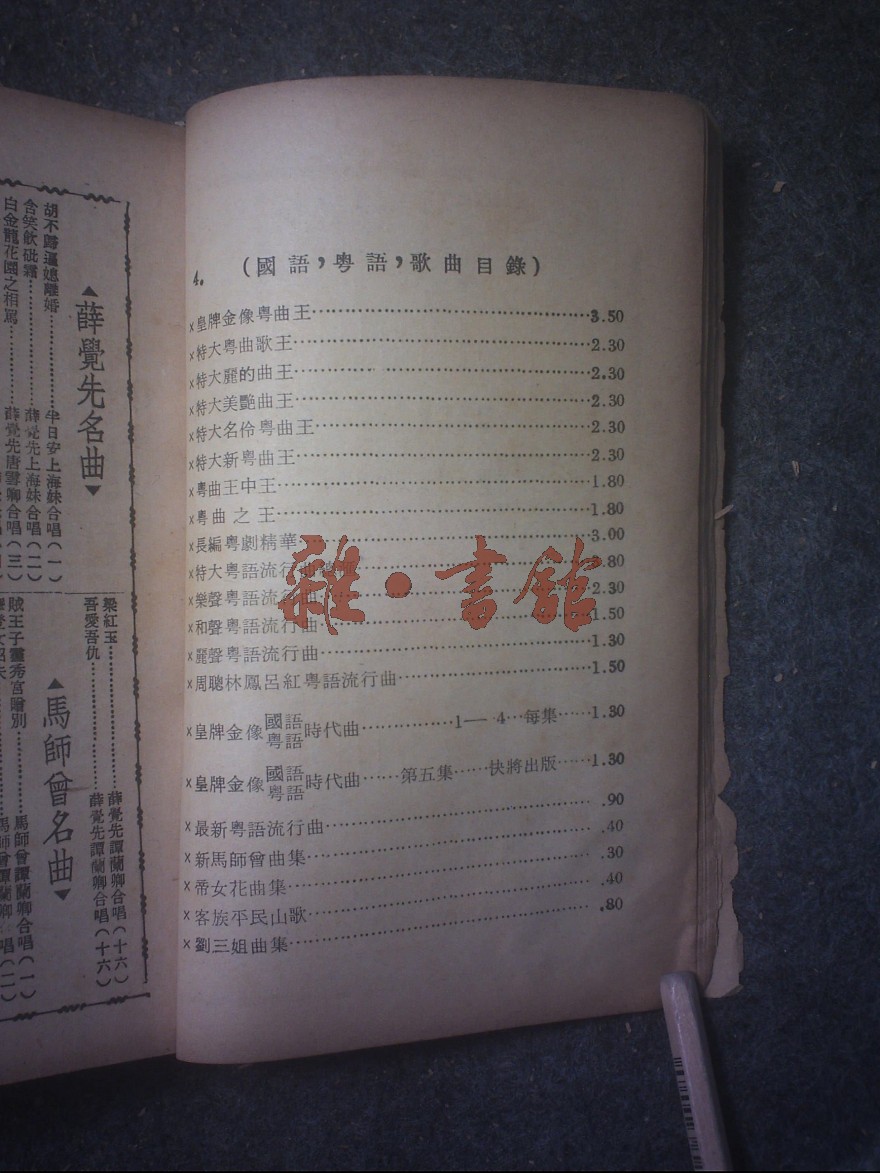 4. （國語，粵語，歌曲目錄）
×皇牌金像粵曲王 3.50
×特大粵曲歌王 2.30
×特大麗的曲王 2.30
×特大美艷曲王 2.30
×特大名伶粵曲王 2.30
×特大新粵曲王 2.30
×粵曲王中王 1.80
×粵曲之王 1.80
×長編粵劇精華 3.00
×特大粵語流行曲 .80
×樂聲粵語流行曲 2.30
×和聲粵語流行曲 1.50
×麗聲粵語流行曲 1.30
×周聰林鳳呂紅粵語流行曲 1.50
×皇牌金像國語粵語時代曲 1— 4 每集 1.30
×皇牌金像國語粵語時代曲 第五集 快將出版 1.30
×最新粵語流行曲 .90
×新馬師曾曲集 .40
×帝女花曲集 .30
×客族平民山歌 .40
×劉三姐曲集 .80
雜·書館
▲薛覺先名曲▼
胡不歸逼媳離婚 半日安上海妹合唱（一）
含笑飲砒霜 薛覺先上海妹合唱（二）
白金龍花園之相罵 薛覺先唐雪卿合唱（三）
梁紅玉 薛覺先譚蘭卿合唱（十六）
吾愛吾仇 薛覺先譚蘭卿合唱（十六）
▲馬師曾名曲▼
賊王子靈秀宮贈別 馬師曾譚蘭卿合唱（一）
馬師曾譚蘭卿 唱（二）